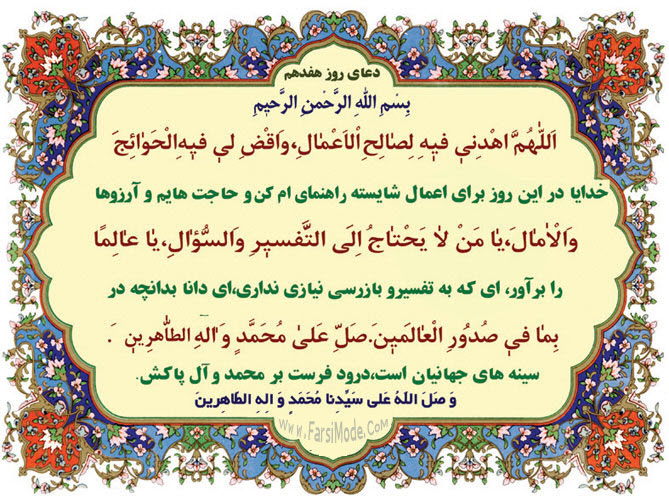 دعای روز هفدهم
بِسْمِ اللهِ الرَّحْمنِ الرَّحیمِ
اَللّهُمَّ اهْدِنی فیهِ لِصالِحِ الْاَعْمالِ،وَاقْضِ لی فیهِ الْحَوائِجَ
خدایا در این روز برای اعمال شایسته راهنمای ام کن و حاجت هایم و آرزوها
وَالْامالَ،یا مَنْ لا یَحْتاجُ اِلَی التَّفسیرِ وَالسُّؤالِ،یا عالِمًا
را برآور، ای که به تفسیرو بازرسی نیازی نداری،ای دانا بدانچه در
بِما فی صُدُورِ الْعالَمینَ.صَلِّ عَلیٰ مُحَمَّدٍ وَ الِهِ الطّاهِرینَ .
سینه های جهانیان است،درود فرست بر محمد و آل پاکش.
وَ صَلَ اللهُ عَلی سَیِّدِنا مُحَمَدٍ وَ الِهِ الطاهِرینَ
www.FarsiMode.Com